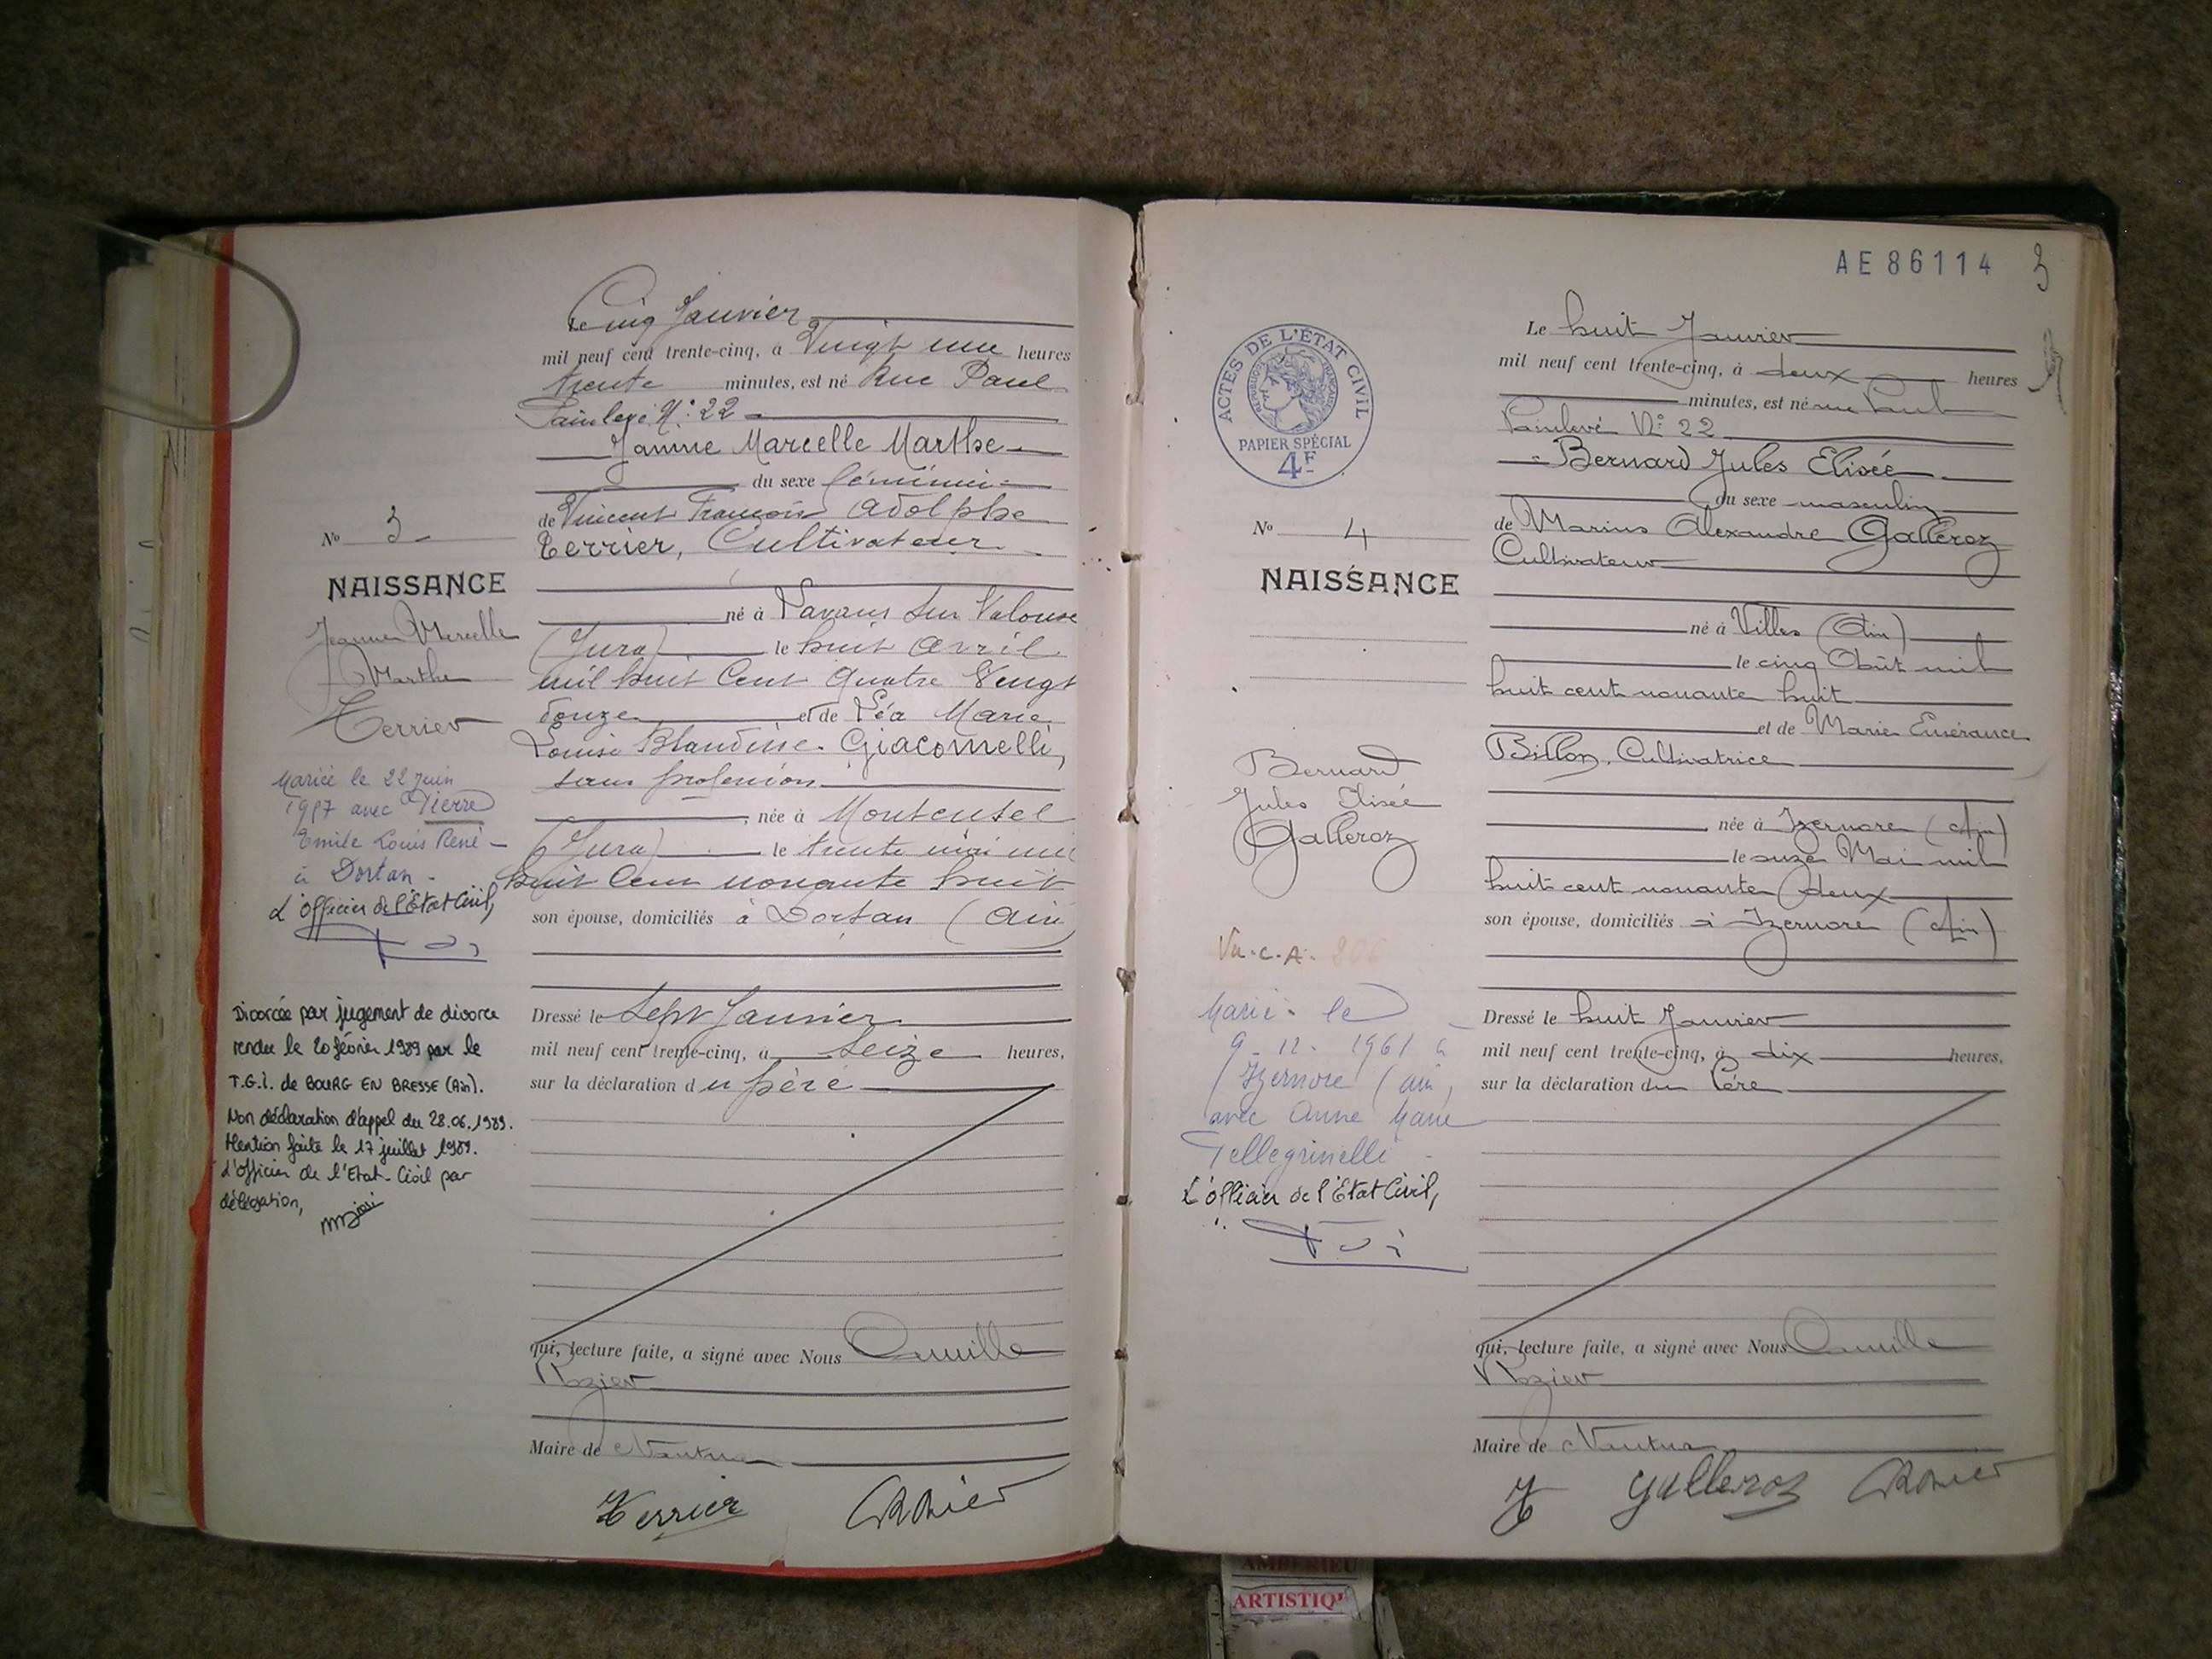 Le Cinq Janvier
mil neuf cent trente-cinq, à Vingt une heures
trente minutes, est né Rue Paul
Painlevé N°: 22
Janine Marcelle Marthe
du sexe féminin
de Vincent François Adolphe
Terrier, Cultivateur
né à Vavans sur Valouse
(Jura) le huit Avril
mil huit Cent Quatre Vingt
douze et de Léa Marie
Louise Blandine Giacomelli,
sans profession
, née à Montcusel
(Jura) le trente mai mil
huit Cent nonante huit
son épouse, domiciliés à Dortan (Ain)
Dressé le Sept Janvier
mil neuf cent trente-cinq, à Seize heures,
sur la déclaration du père
qui, lecture faite, a signé avec Nous Camille
Rozier
Maire de Nantua
Terrier CRozier
No 3
NAISSANCE
Jeanne Marcelle
Marthe
Terrier
Mariée le 22 juin
1957 avec Pierre
Emile Louis René
à Dortan
L'officier de l'État Civil,
Divorcée par jugement de divorce
rendu le 20 février 1989 par le
T.G.I. de BOURG EN BRESSE (Ain).
Non déclaration d'appel du 28.06.1989.
Mention faite le 17 juillet 1989.
L'officier de l'Etat-Civil par
délégation,
AE86114 3
ACTES DE L'ÉTAT CIVIL
RÉPUBLIQUE FRANÇAISE
PAPIER SPÉCIAL
4F
Le huit Janvier
mil neuf cent trente-cinq, à deux heures
minutes, est né rue Paul
Painlevé N°: 22
Bernard Jules Elisée
du sexe masculin
de Marius Alexandre Galleroz
Cultivateur
né à Villes (Ain)
le cinq Août mil
huit cent nonante huit
et de Marie Emérance
Billon, Cultivatrice
née à Izernore (Ain)
le onze Mai mil
huit cent nonante deux
son épouse, domiciliés à Izernore (Ain)
Dressé le huit Janvier
mil neuf cent trente-cinq, à dix heures,
sur la déclaration du Père
qui, lecture faite, a signé avec Nous Camille
Rozier
Maire de Nantua
Galleroz CRozier
No 4
NAISSANCE
Bernard
Jules Elisée
Galleroz
Vu.C.A. 206
Marié le
9-12-1961 à
Izernore (Ain)
avec Anne Marie
Pellegrinelli
L'officier de l'État Civil,
AMBERIEU
ARTISTIQU